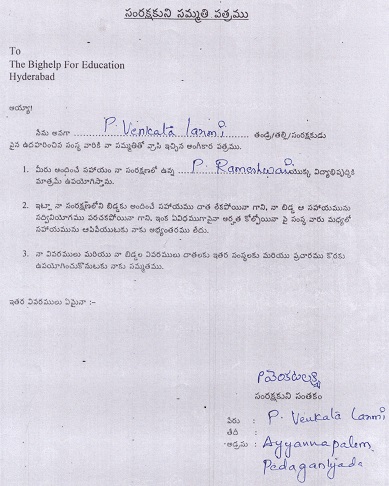 సంరక్షకుని సమ్మతి పత్రము
To
The Bighelp For Education
Hyderabad
అయ్యా!
నేను అనగా P. Venkata laxmi తండ్రి/తల్లి/సంరక్షకుడు
పైన ఉదహరించిన సంస్థ వారికి నా సమ్మతితో వ్రాసి ఇచ్చిన అంగీకార పత్రము.
1. మీరు అందించే సహాయం నా సంరక్షణలో ఉన్న P. Rameshwari యొక్క విద్యాభివృద్ధికి
మాత్రమే ఉపయోగిస్తాము.
2. ఇట్లా నా సంరక్షణలోని బిడ్డకు అందించే సహాయము దాత లేకపోయినా గాని, నా బిడ్డ ఆ సహాయమును
సద్వినియోగము పరచకపోయినా గాని, ఇంక ఏవిధముగానైనా అర్హత కోల్పోయినా పై సంస్థ వారు మధ్యలో
సహాయమును ఆపివేయుటకు నాకు అభ్యంతరము లేదు.
3. నా వివరములు మరియు నా బిడ్డల వివరములు దాతలకు ఇతర సంస్థలకు మరియు ప్రచారము కొరకు
ఉపయోగించుకొనుటకు నాకు సమ్మతము.
ఇతర వివరములు ఏమైనా :-
P వెంకటలక్ష్మి
సంరక్షకుని సంతకం
పేరు : P. Venkata laxmi
తేది :
అడ్రసు : Ayyannapalem
Pedagantyada